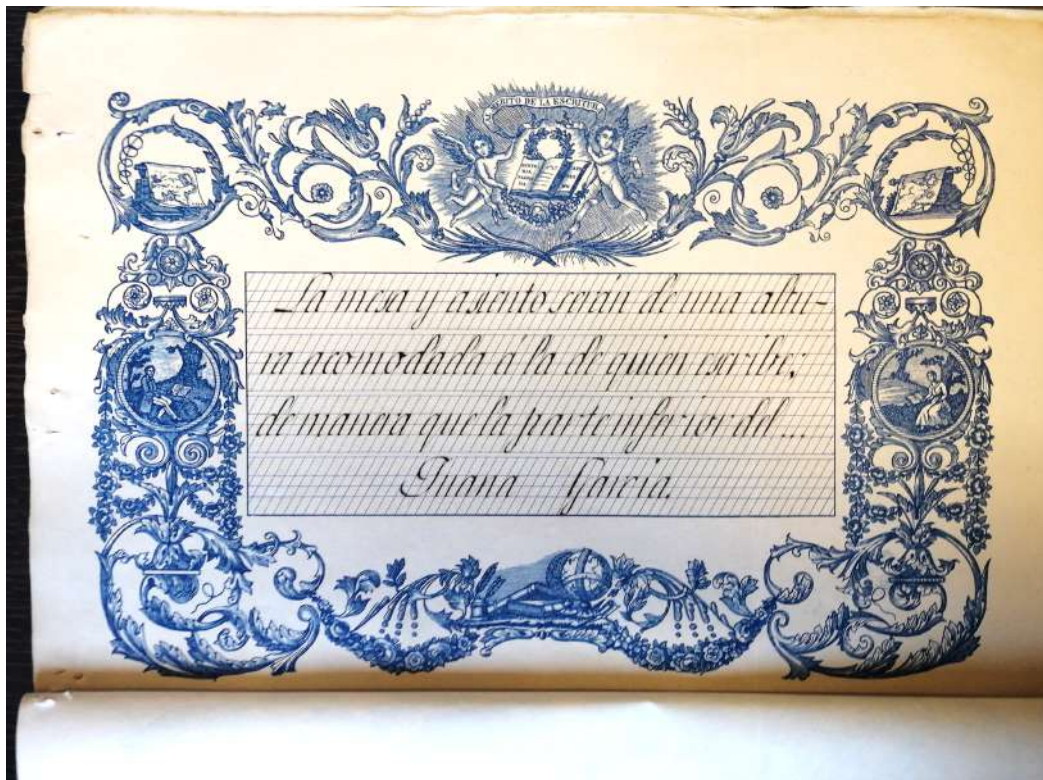 MERITO DE LA ESCRITURA
La mesa y asiento serán de una altu-
ra acomodada á la de quien escribe;
de manera que la parte inferior del...
Juana Garcia.